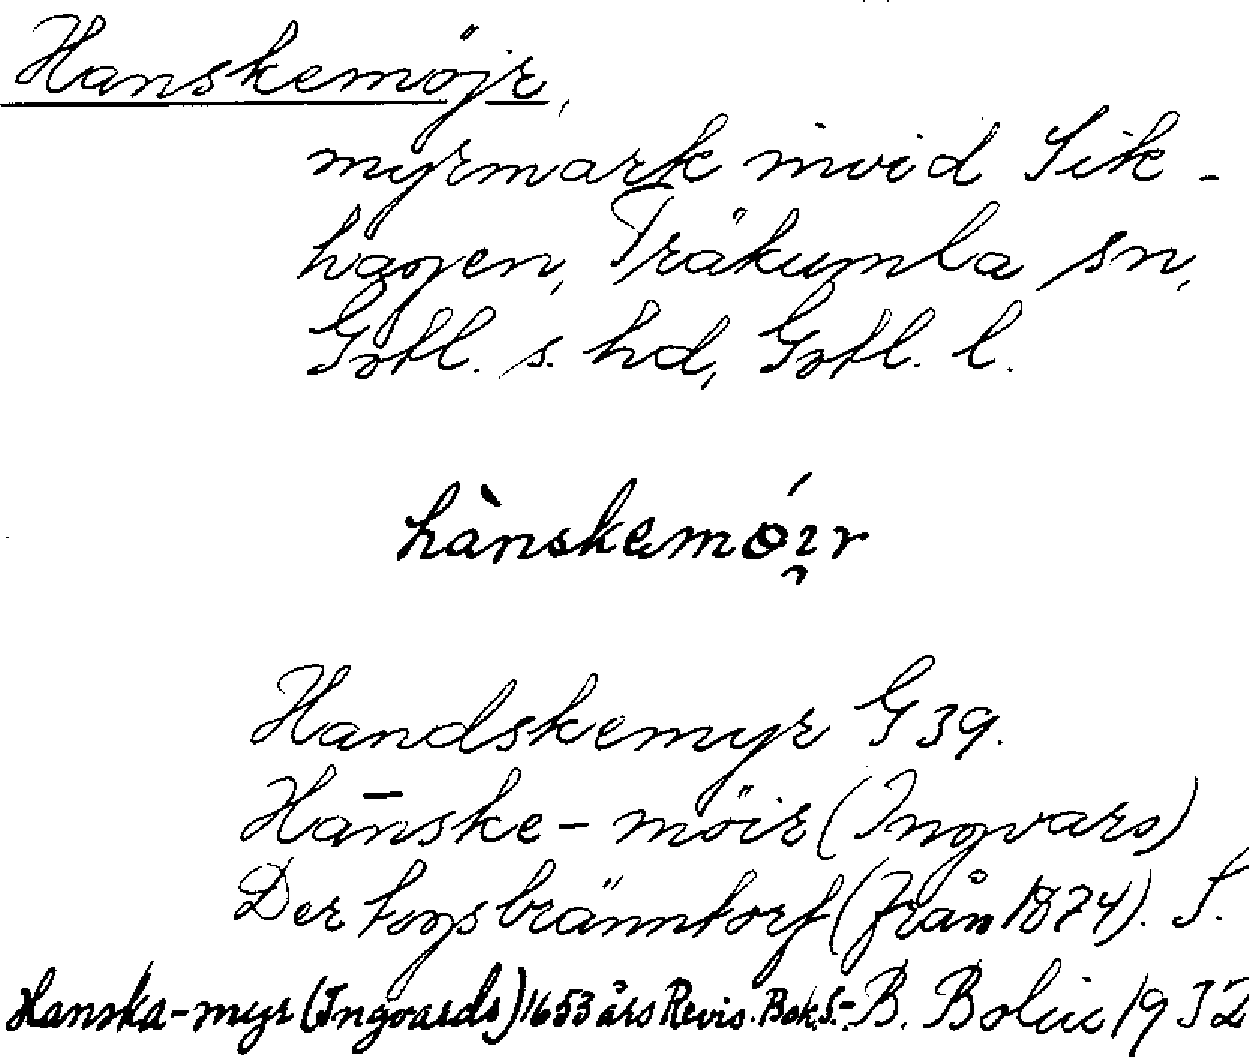 Hanskemöjr,
myrmark invid Sik-
hagen, Träkumla sn,
Gotl. s. hd, Gotl. l.
hànskemóir
Handskemyr G 39.
Hanske-möir (Ingvars)
Der togs bränntorf (från 1874). S.
Hanska-myr (Ingvards) 1653 års Revis. Bok S.- B. Bolin 1932